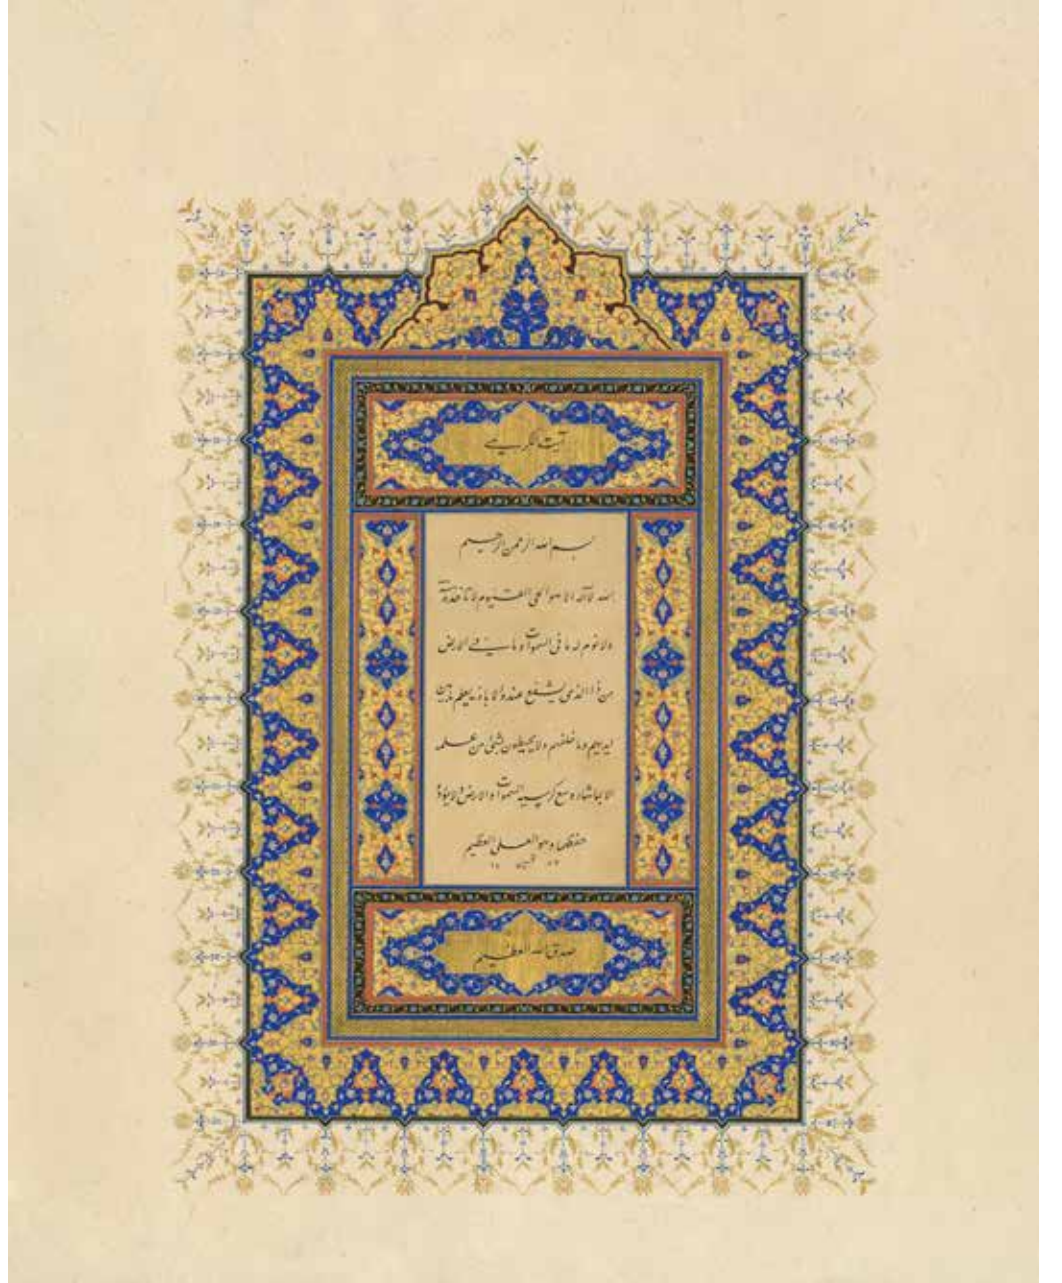 آیت الکرسی
بسم الله الرحمن الرحیم
الله لا اله الا هو الحی القیوم لا تاخذه سنة
ولا نوم له ما فی السموات و ما فی الارض
من ذا الذی یشفع عنده الا باذنه یعلم ما بین
ایدیهم و ما خلفهم ولا یحیطون بشئ من علمه
الا بما شاء وسع کرسیه السموات و الارض ولا یؤده
حفظهما و هو العلی العظیم
صدق الله العظیم